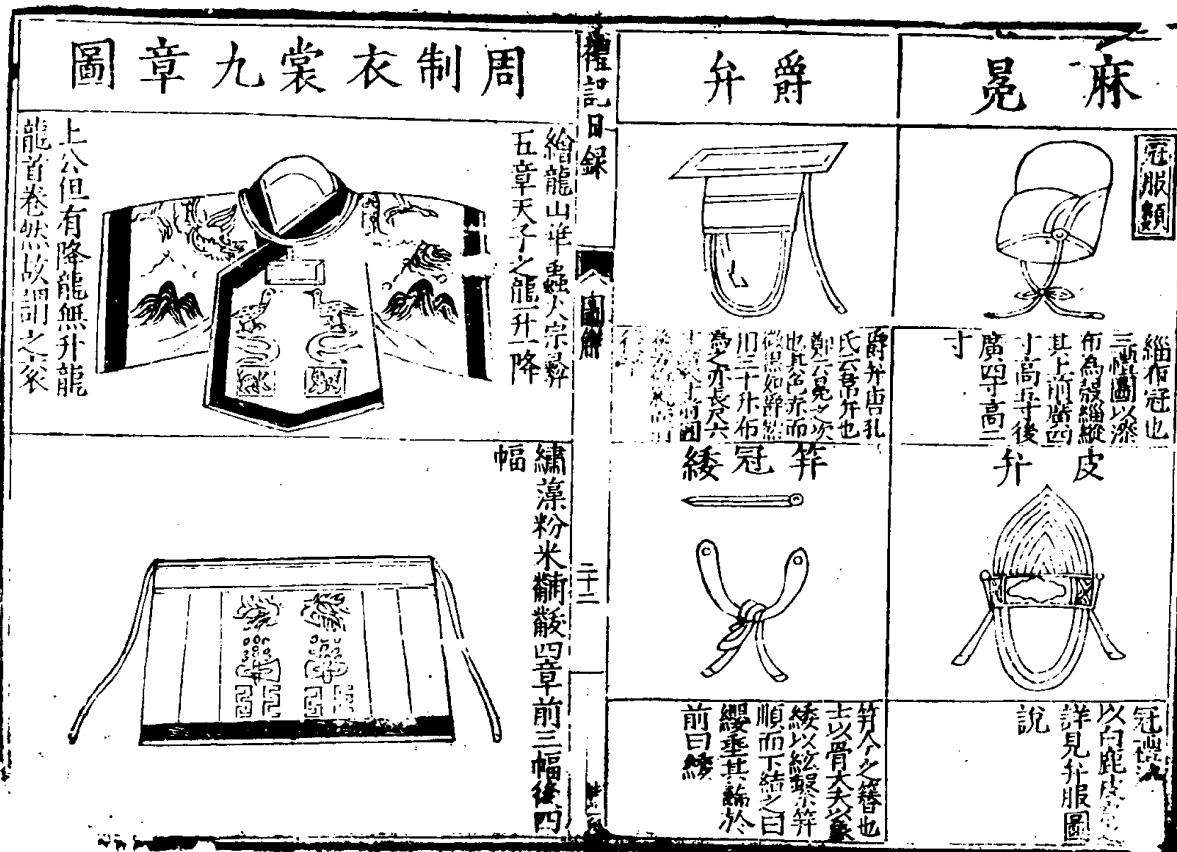 麻冕
冠服類
緇布冠也
三禮圖以漆
布為殼緇縰
其上前廣四
寸高五寸後
廣四寸高三
寸
皮弁
冠禮
以白鹿皮
詳見弁服圖
說
爵弁
爵弁唐孔
氏云常弁也
鄭云冕之次
也其色赤而
微黑如爵然
用三十升布
為之亦長尺六
笄冠緌
笄今之簪也
士以骨大夫以象
緌以紘繫笄
順而下結之曰
纓垂其餘於
前曰緌
禮記目錄
圖解
二十二
周制衣裳九章圖
繪龍山華蟲火宗彝
五章天子之龍一升一降
上公但有降龍無升龍
龍首卷然故謂之袞
繡藻粉米黼黻四章前三幅後四
幅